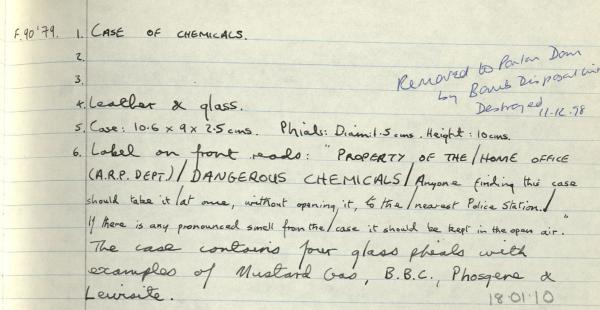 F.90'79. 1. CASE OF CHEMICALS.
2.
3.
Removed to Porton Down
by Bomb Disposal Unit
Destroyed 11-12.98
4. Leather & glass.
5. Case: 10.6 x 9 x 2.5 cms. Phials: Diam: 1.5 cms. Height: 10cms.
6. Label on front reads: "PROPERTY OF THE / HOME OFFICE
(A.R.P. DEPT) / DANGEROUS CHEMICALS / Anyone finding this case
should take it / at once, without opening it, to the / nearest Police Station. /
If there is any pronounced smell from the / case it should be kept in the open air."
The case contains four glass phials with
examples of Mustard Gas, B.B.C., Phosgene &
Lewisite.
18.01.10